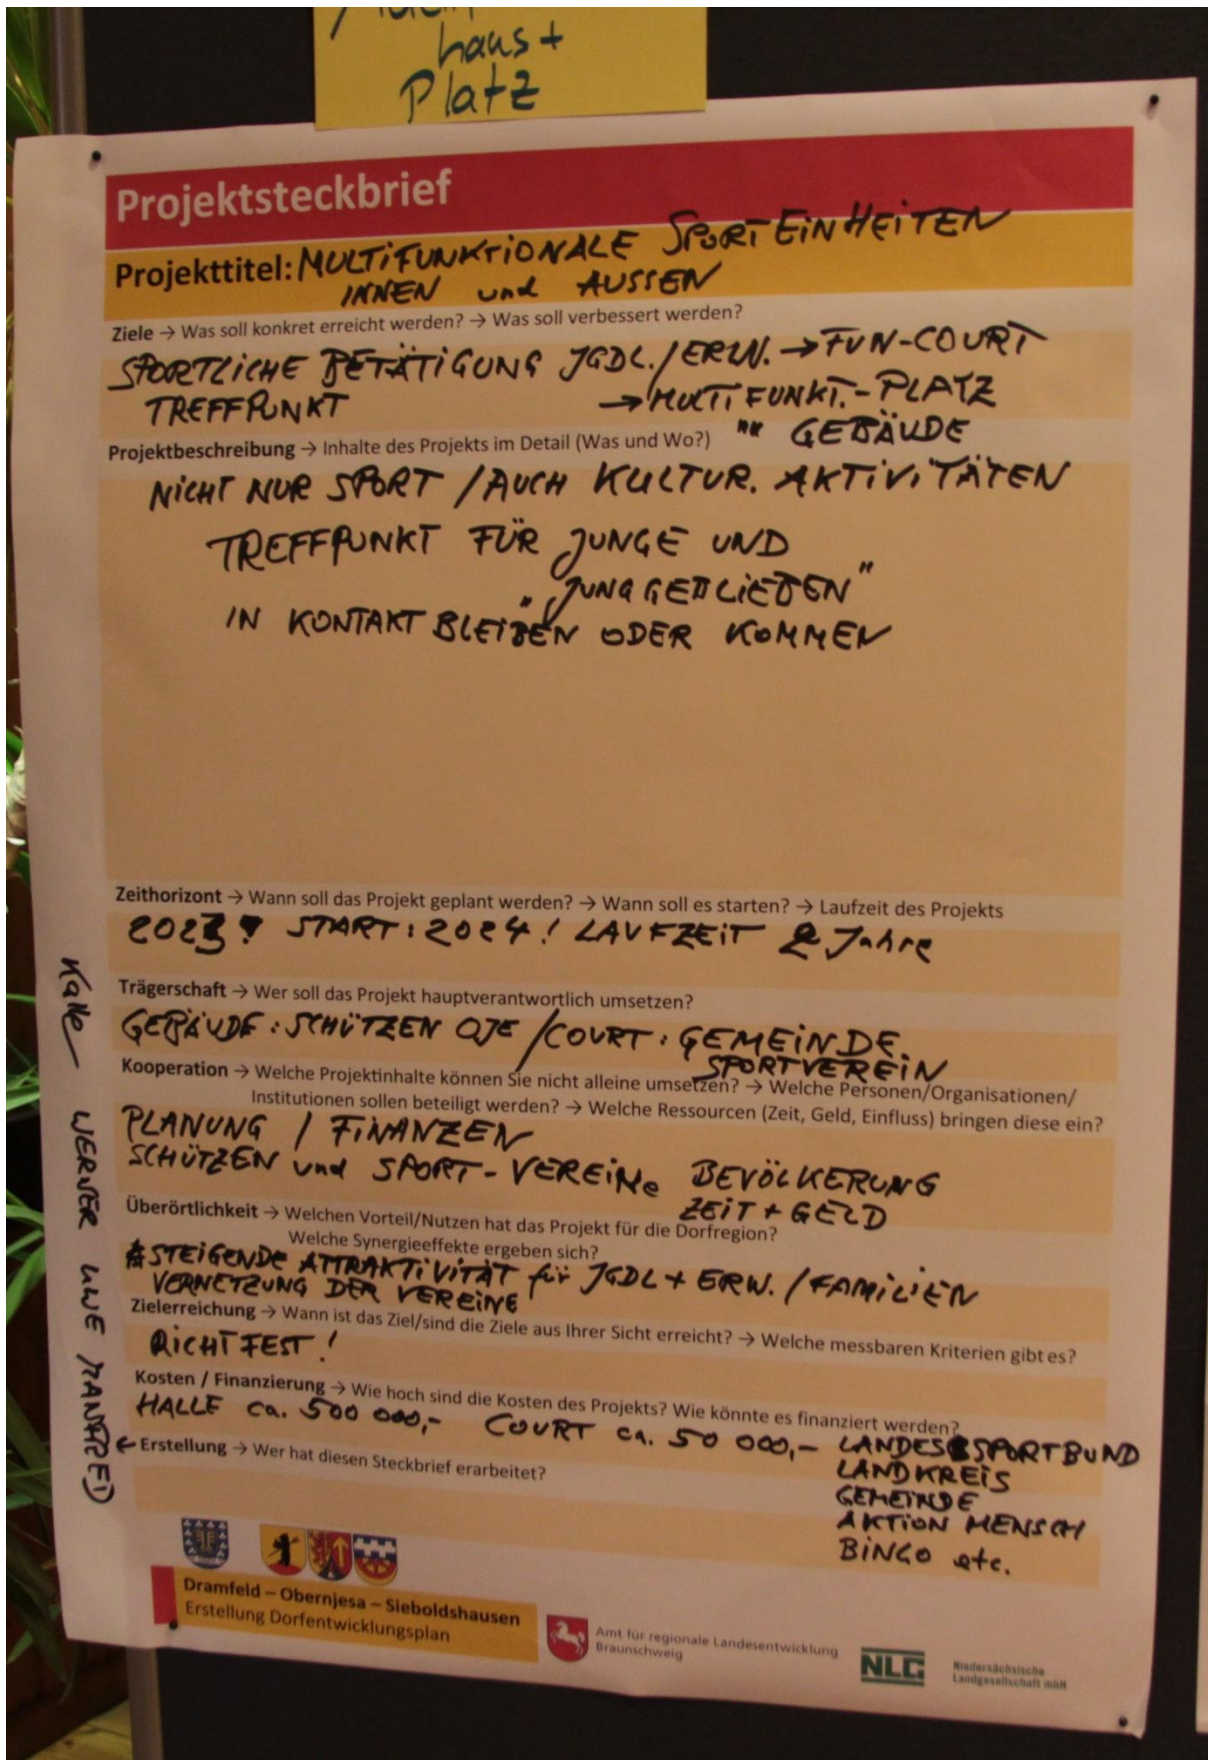 haus +
Platz
Projektsteckbrief
Projekttitel: MULTIFUNKTIONALE SPORTEINHEITEN
INNEN und AUSSEN
Ziele → Was soll konkret erreicht werden? → Was soll verbessert werden?
SPORTLICHE BETÄTIGUNG JGDL./ERW. → FUN-COURT
TREFFPUNKT → MULTIFUNKT.-PLATZ
"" GEBÄUDE
Projektbeschreibung → Inhalte des Projekts im Detail (Was und Wo?)
NICHT NUR SPORT / AUCH KULTUR. AKTIVITÄTEN
TREFFPUNKT FÜR JUNGE UND
"JUNGGEBLIEBEN"
IN KONTAKT BLEIBEN ODER KOMMEN
Zeithorizont → Wann soll das Projekt geplant werden? → Wann soll es starten? → Laufzeit des Projekts
2023? START: 2024! LAUFZEIT 2 Jahre
Trägerschaft → Wer soll das Projekt hauptverantwortlich umsetzen?
GEBÄUDE: SCHÜTZEN OJE / COURT: GEMEINDE
SPORTVEREIN
Kooperation → Welche Projektinhalte können Sie nicht alleine umsetzen? → Welche Personen/Organisationen/
Institutionen sollen beteiligt werden? → Welche Ressourcen (Zeit, Geld, Einfluss) bringen diese ein?
PLANUNG / FINANZEN
SCHÜTZEN und SPORT-VEREINe BEVÖLKERUNG
ZEIT + GELD
Überörtlichkeit → Welchen Vorteil/Nutzen hat das Projekt für die Dorfregion?
Welche Synergieeffekte ergeben sich?
STEIGENDE ATTRAKTIVITÄT für JGDL + ERW. / FAMILIEN
VERNETZUNG DER VEREINE
Zielerreichung → Wann ist das Ziel/sind die Ziele aus Ihrer Sicht erreicht? → Welche messbaren Kriterien gibt es?
RICHTFEST!
Kosten / Finanzierung → Wie hoch sind die Kosten des Projekts? Wie könnte es finanziert werden?
HALLE ca. 500 000,- COURT ca. 50 000,- LANDESSPORTBUND
LANDKREIS
GEMEINDE
AKTION MENSCH
BINGO etc.
← Erstellung → Wer hat diesen Steckbrief erarbeitet?
Kalle WERNER UWE MANFRED
Dramfeld – Obernjesa – Sieboldshausen
Erstellung Dorfentwicklungsplan
Amt für regionale Landesentwicklung
Braunschweig
NLG
Niedersächsische
Landgesellschaft mbH